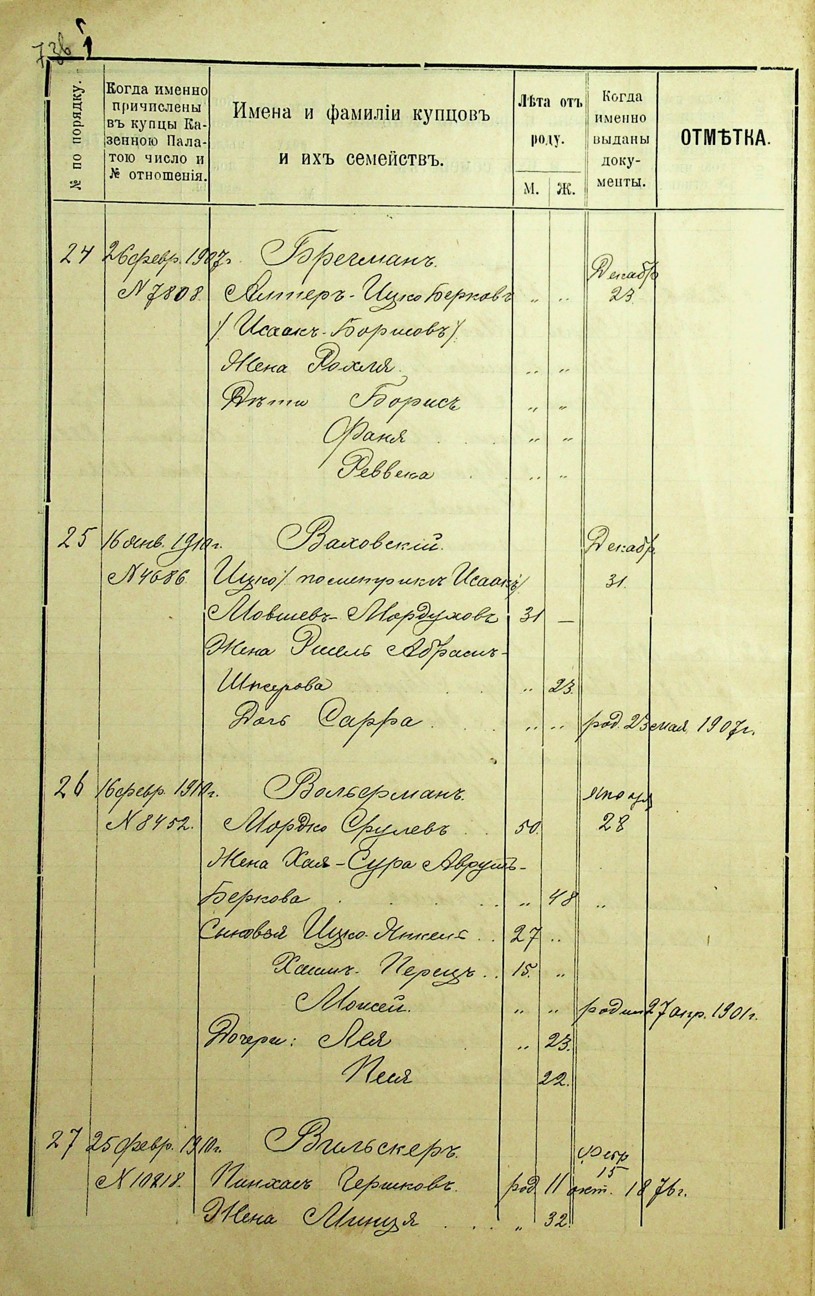 № по порядку.
Когда именно
причислены
въ купцы Ка-
зенною Пала-
тою число и
№ отношенія.
Имена и фамиліи купцовъ
и ихъ семействъ.
Лѣта отъ
роду.
М. Ж.
Когда
именно
выданы
доку-
менты.
ОТМѢТКА.
24 26 февр. 1907 г. Брегманъ. Декабр
N 7808. Алтеръ-Ицко Берковъ „ „ 23.
/Исаакъ-Борисовъ/
Жена Рохля. „ „
Дѣти Борисъ „ „
Фаня „ „
Реввека „ „
25 16 янв. 1910 г. Ваховскій. Декабр
N 4686 Ицко/ по метрикѣ Исаакъ/ 31.
Мовшев-Мордуховъ 31 —
Жена Рисель Абрамъ-
Шмерова „ 23.
Дочь Сарра „ „ род. 23 мая 1907 г.
26 16 февр. 1910 г. Вольерманъ.
N 8452. Мордко Срулевъ 50. 28
Жена Хая-Сура Аврумъ-
Беркова „ 48 „
Сыновья Ицко-Янкель 27 „
Хаимъ-Перецъ 15. „
Мошей. „ „ родил 27 апр. 1901 г.
Дочери: Лея „ 23.
Песя 22.
27 25 февр. 1910 г. Вильскеръ. Февр
N 10818. Пинхасъ Гершковъ. род. 11 окт. 1876 г. 15
Жена Минця „ 32.